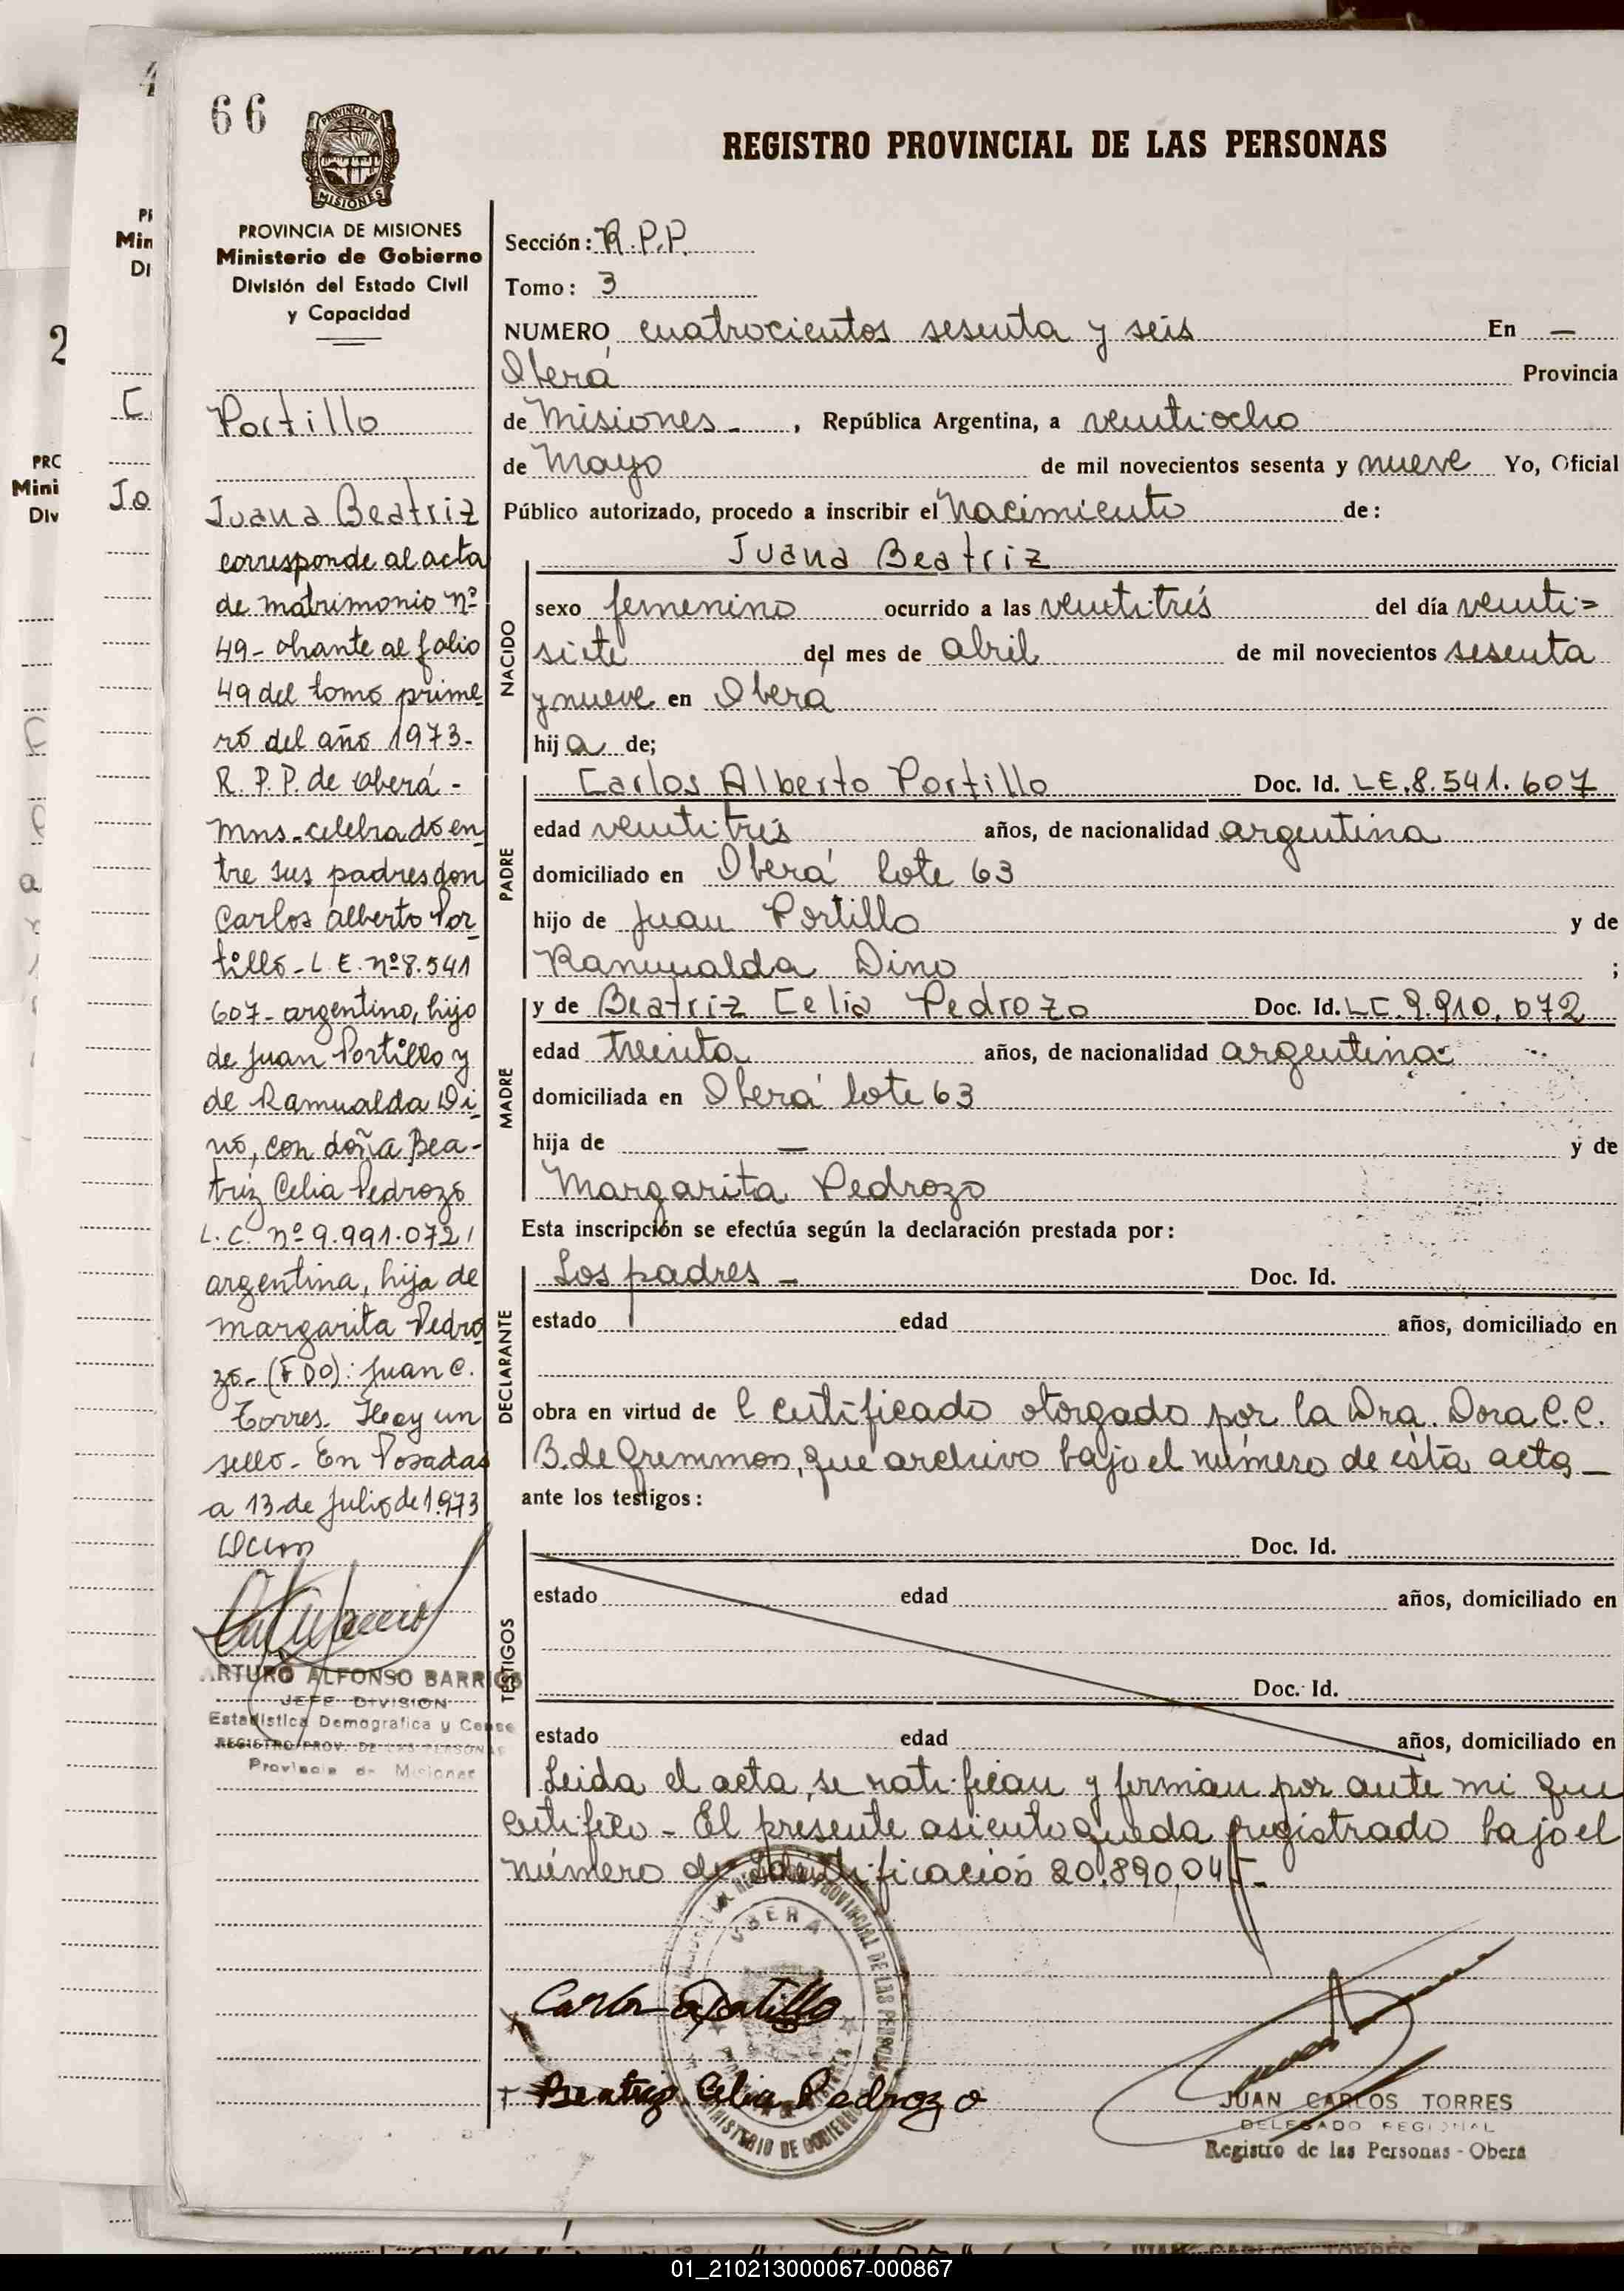 66
PROVINCIA DE MISIONES
Ministerio de Gobierno
División del Estado Civil
y Capacidad
Portillo
Juana Beatriz
corresponde al acta
de matrimonio nº
49- obrante al folio
49 del tomo prime
ro del año 1973-
R. P. P. de Oberá-
Mns. celebrado en
tre sus padres don
Carlos Alberto Por
tillo- L. E. nº 8.541
607- argentino, hijo
de Juan Portillo y
de Ramualda Di
no, con doña Bea-
triz Celia Pedrozo
L. C. nº 9.991.072,
argentina, hija de
Margarita Pedro
zo- (FDO): Juan C.
Torres. Hay un
sello- En Posadas
a 13 de Julio de 1.973
ARTURO ALFONSO BARRIOS
JEFE DIVISION
Estadistica Demografica y Cense
REGISTRO PROV. DE LAS PERSONAS
Provincia de Misiones
REGISTRO PROVINCIAL DE LAS PERSONAS
Sección: R.P.P.
Tomo: 3
NUMERO cuatrocientos sesenta y seis En —
Oberá Provincia
de Misiones-, República Argentina, a veintiocho
de Mayo de mil novecientos sesenta y nueve Yo, Oficial
Público autorizado, procedo a inscribir el Nacimiento de:
NACIDO
Juana Beatriz
sexo femenino ocurrido a las veintitrés del día veinti=
siete del mes de abril de mil novecientos sesenta
y nueve en Oberá
hija de;
PADRE
Carlos Alberto Portillo Doc. Id. LE.8.541.607
edad veintitrés años, de nacionalidad argentina
domiciliado en Oberá lote 63
hijo de Juan Portillo y de
Ramualda Dino ;
MADRE
y de Beatriz Celia Pedrozo Doc. Id. LC.9.910.072
edad treinta años, de nacionalidad argentina
domiciliada en Oberá lote 63
hija de — y de
Margarita Pedrozo
Esta inscripción se efectúa según la declaración prestada por:
DECLARANTE
Los padres - Doc. Id.
estado edad años, domiciliado en
obra en virtud de l certificado otorgado por la Dra. Dora C.C.
B. de que archivo bajo el número de ésta acta-
ante los testigos:
TESTIGOS
Doc. Id.
estado edad años, domiciliado en
Doc. Id.
estado edad años, domiciliado en
Leida el acta, se ratifican y firman por ante mi que
certifico- El presente asiento queda registrado bajo el
número de Identificación 20.890.045-
OBERA
Carlos A Portillo
Beatriz Celia Pedrozo
JUAN CARLOS TORRES
DELEGADO REGIONAL
Registro de las Personas - Oberá
01_210213000067-000867